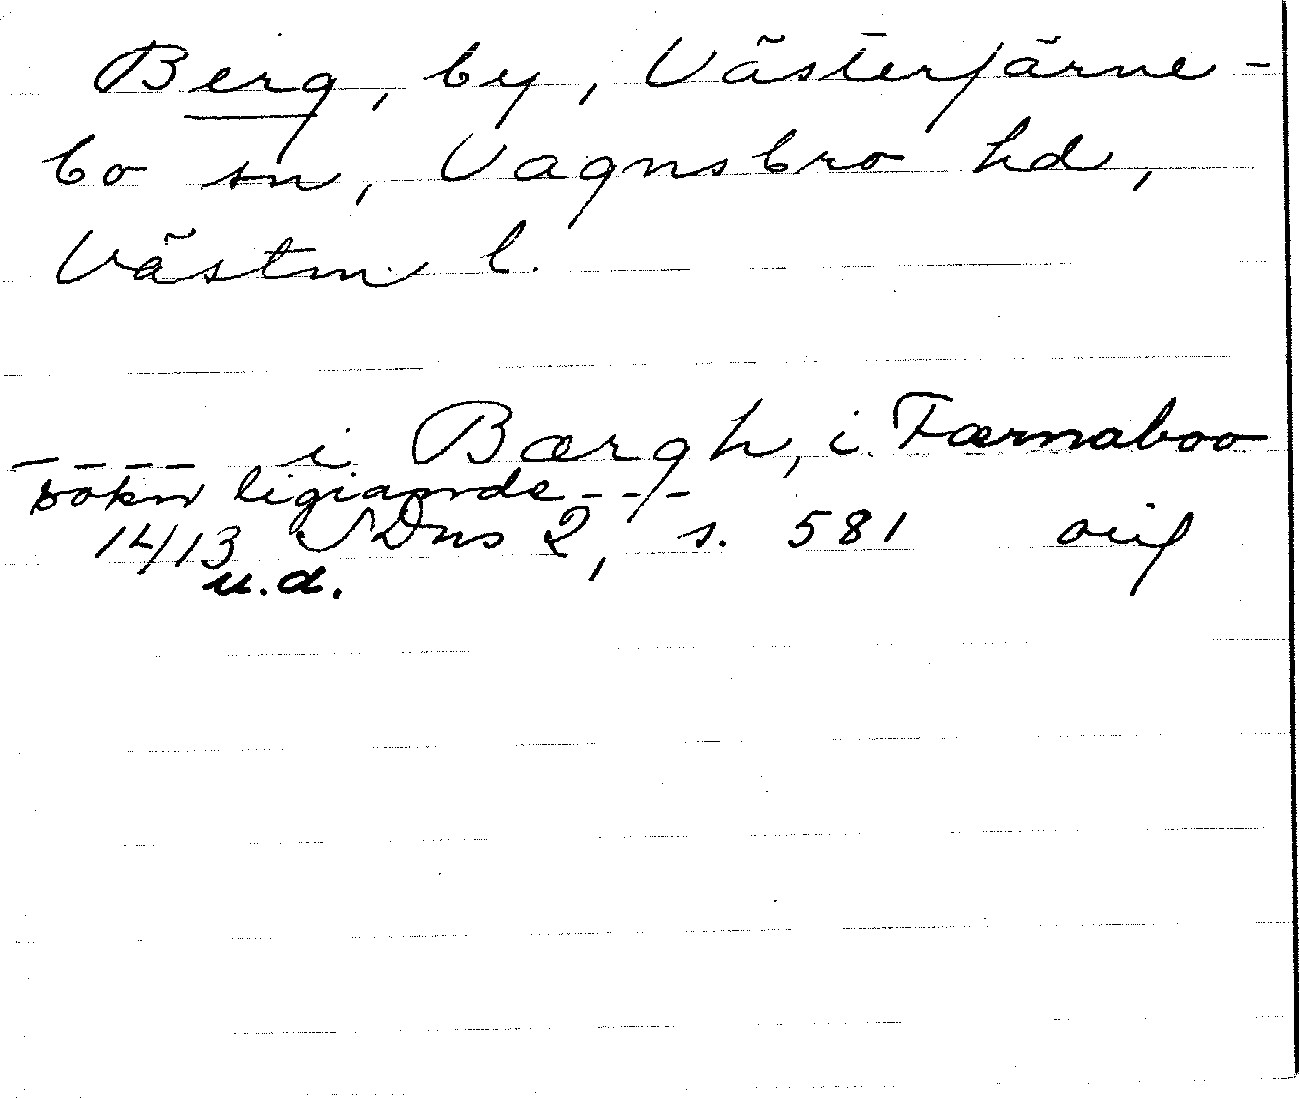 Berg, by, Västerfärne-
bo sn, Vagnsbro hd,
Västm l.
---- i Bærgh, i Færnaboo
sokn ligiande ---
1413 SDns 2, s. 581 orig
u.d.